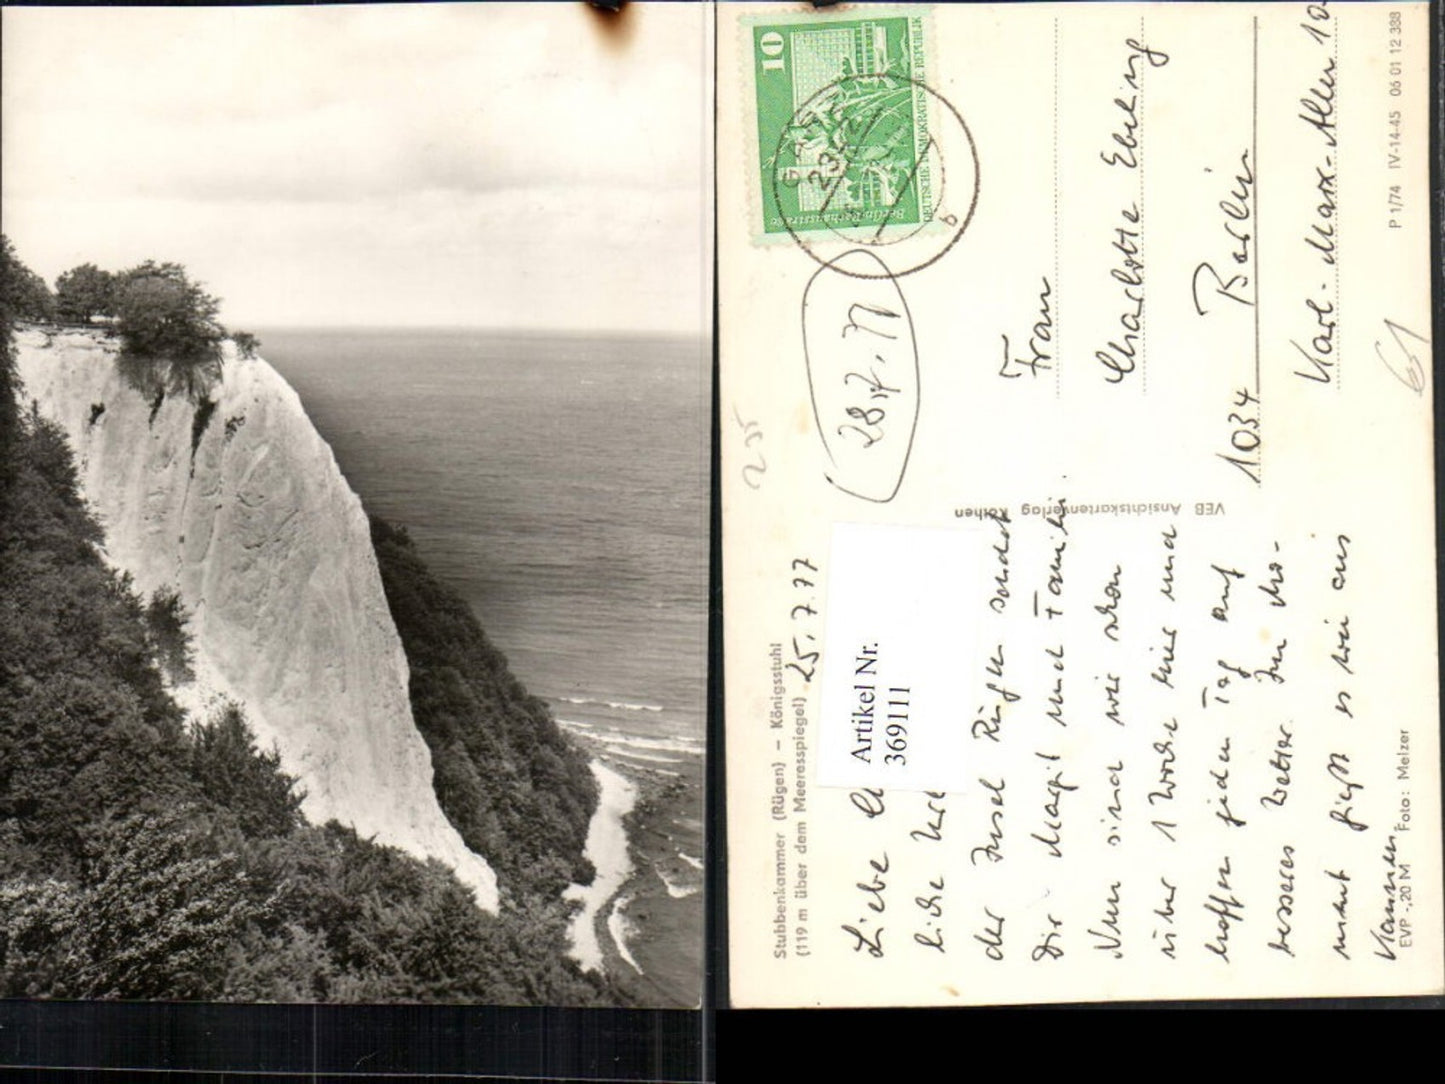 Stubbenkammer (Rügen) – Königsstuhl
(119 m über dem Meeresspiegel)
25. 7. 77
Liebe
liche
der Insel Rügen sendet
Dir Margit und Familie.
Nun sind wir schon
über 1 Woche hier und
hoffen jeden Tag auf
besseres Wetter. Im Mo-
ment gießt es wie aus
Kannen.
EVP -,20 M Foto: Melzer
Artikel Nr.
369111
VEB Ansichtskartenverlag Köthen
10
DEUTSCHE DEMOKRATISCHE REPUBLIK
Berlin-Rathausstraße
2352
b
28.7.77
Frau
Charlotte Ebeling
1034 Berlin
Karl-Marx-Allee
P 1/74 IV-14-45 06 01 12 388